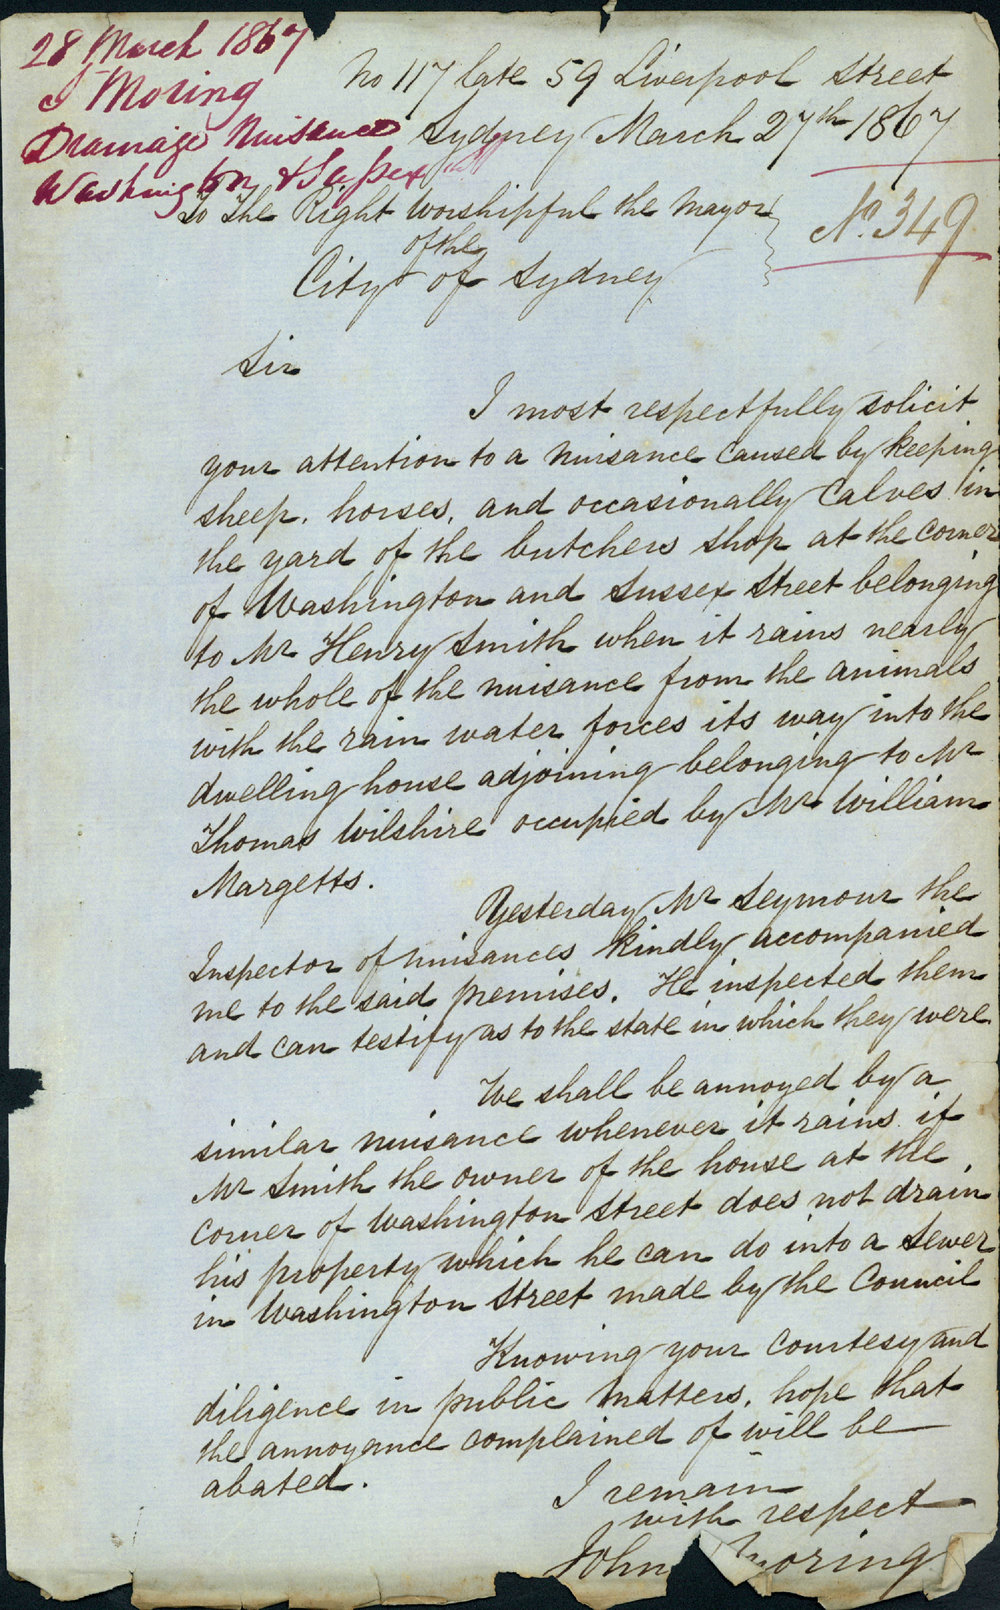 28 March 1867
J Moring
Drainage Nuisance
Washington & Sussex
No 117 late 59 Liverpool Street
Sydney March 27th 1867
No. 349
To the Right Worshipful the Mayor
of the
City of Sydney
Sir
I most respectfully solicit
your attention to a nuisance caused by keeping
sheep. horses, and occasionally calves in
the yard of the butchers shop at the corner
of Washington and Sussex Street belonging
to Mr Henry Smith when it rains nearly
the whole of the nuisance from the animals
with the rain water forces its way into the
dwelling house adjoining belonging to Mr
Thomas Wilshire occupied by Mr William
Margetts.
Yesterday Mr Seymour the
Inspector of nuisances kindly accompanied
me to the said premises. He inspected them
and can testify as to the state in which they were
We shall be annoyed by a
similar nuisance whenever it rains if
Mr Smith the owner of the house at the
corner of Washington Street does not drain
his property which he can do into a sewer
in Washington Street made by the Council
Knowing your courtesy and
diligence in public matters, hope that
the annoyance complained of will be
abated.
I remain
with respect
John Moring